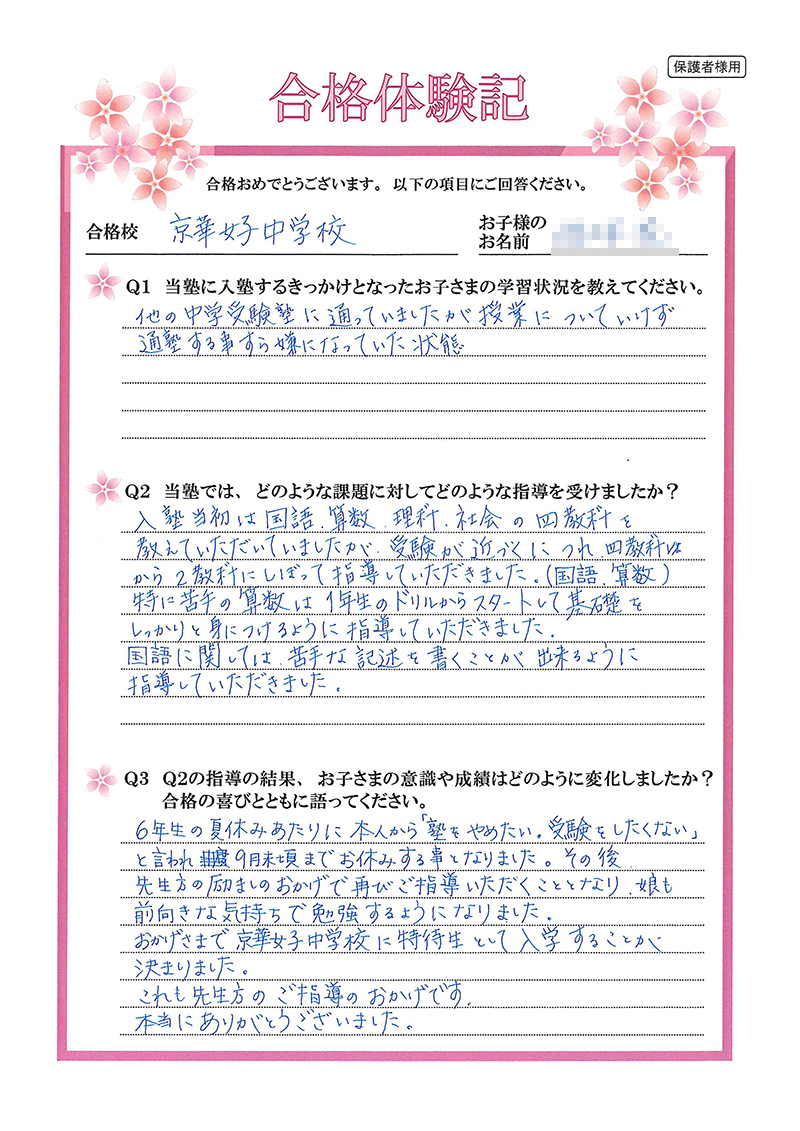 保護者様用
合格体験記
合格おめでとうございます。以下の項目にご回答ください。
合格校 京華女子中学校
お子様の
お名前
Q1 当塾に入塾するきっかけとなったお子さまの学習状況を教えてください。
他の中学受験塾に通っていましたが授業についていけず
通塾する事すら嫌になっていた状態
Q2 当塾では、どのような課題に対してどのような指導を受けましたか？
入塾当初は国語、算数、理科、社会の四教科を
教えていただいていましたが、受験が近づくにつれ四教科
から2教科にしぼって指導していただきました。(国語、算数)
特に苦手の算数は1年生のドリルからスタートして基礎を
しっかりと身につけるように指導していただきました。
国語に関しては、苦手な記述を書くことが出来るように
指導していただきました。
Q3 Q2の指導の結果、お子さまの意識や成績はどのように変化しましたか？
合格の喜びとともに語ってください。
6年生の夏休みあたりに本人から「塾をやめたい。受験をしたくない」
と言われ 9月末頃までお休みする事となりました。その後
先生方の励ましのおかげで再びご指導いただくこととなり、娘も
前向きな気持ちで勉強するようになりました。
おかげさまで京華女子中学校に特待生として入学することが
決まりました。
これも先生方のご指導のおかげです。
本当にありがとうございました。